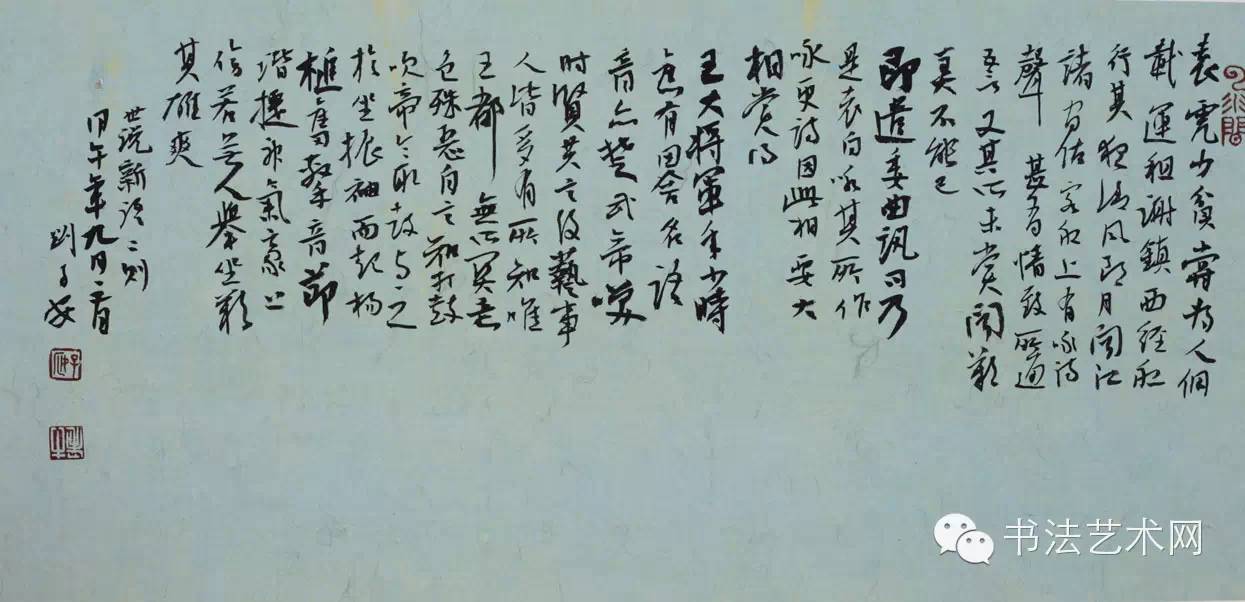 袁虎少貧嘗為人傭
載運租謝鎮西經船
行其夜清風朗月聞江
渚間估客船上有詠詩
聲甚有情致所誦
五言又其所未嘗聞歎
美不能已
即遣委曲訊問乃
是袁自詠其所作
詠史詩因此相要大
相賞得
王大將軍年少時
舊有田舍名語
音亦楚武帝喚
時賢共言伎藝事
人皆多有所知唯
王都無所關意
色殊惡自言知打鼓
吹帝令取鼓與之
於坐振袖而起揚
槌奮擊音節
諧捷神氣豪上
傍若無人舉坐歎
其雄爽
世說新語二則
甲午年九月
书法艺术网